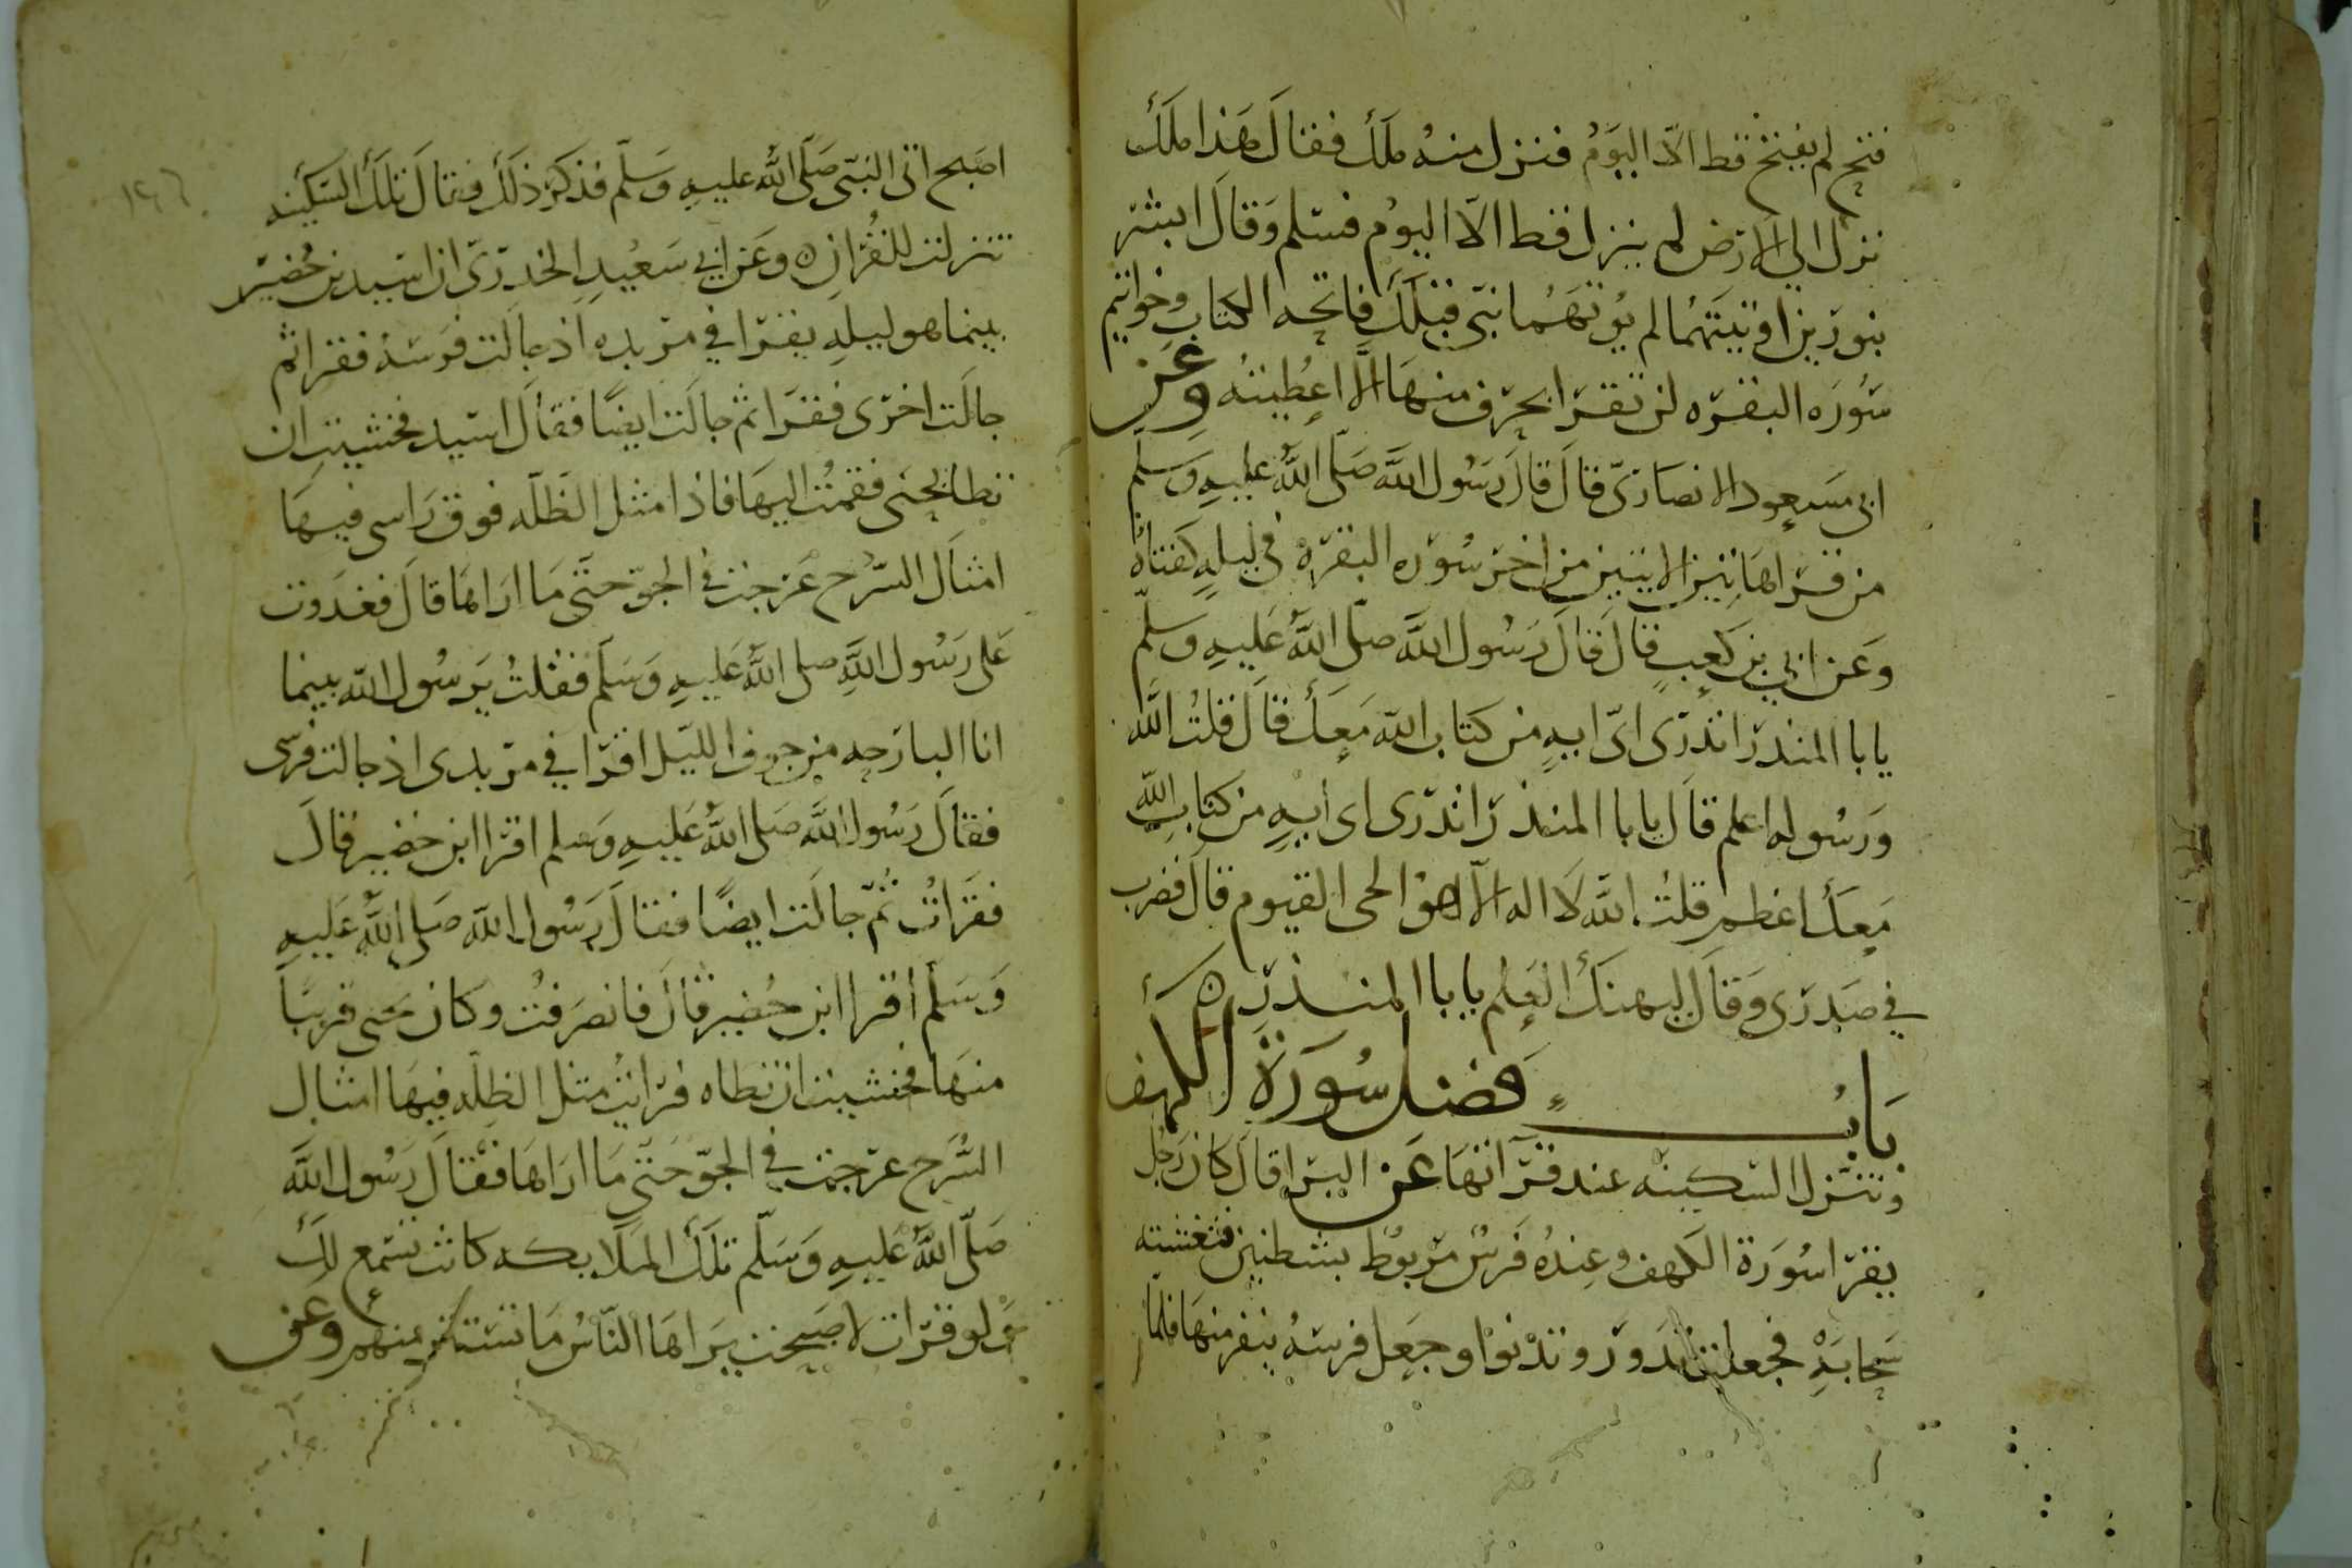 فتح لم يفتح قط الا اليوم فنزل منه ملك فقال هذا ملك
نزل الى الارض لم ينزل قط الا اليوم فسلم وقال ابشر
بنورين اوتيتهما لم يوتهما نبى قبلك فاتحه الكتاب وخواتيم
سوره البقره لن تقرا بحرف منها الا اعطيته وعن
ابى مسعود الانصارى قال قال رسول الله صلى الله عليه وسلم
من قرا هاتين الايتين من اخر سوره البقره فى ليله كفتاه
وعن ابي بن كعب قال قال رسول الله صلى الله عليه وسلم
يابا المنذر اتدرى اى ايه من كتاب الله معك قال قلت الله
ورسوله اعلم قال يابا المنذر اتدرى اى ايه من كتاب الله
معك اعظم قلت الله لا اله الا هو الحى القيوم قال فضرب
في صدرى وقال ليهنك العلم يابا المنذر ه
باب فضل سورة الكهف
وتنزل السكينه عند قرآتها عن البرا قال كان رجل
يقرا سورة الكهف وعنده فرس مربوط بشطنين فتغشته
سحابه فجعلت تدور وتدنوا وجعل فرسه ينفر منها فلما
اصبح اتى النبى صلى الله عليه وسلم فذكر ذلك فقال تلك السكينه
تنزلت للقران ه وعن ابي سعيد الخدرى ان اسيد بن حضير
بينما هو ليله يقرا في مربده اذ جالت فرسه فقرا ثم
جالت اخرى فقرا ثم جالت ايضا فقال اسيد فخشيت ان
تطا يحيى فقمت اليها فاذا مثل الظله فوق راسى فيها
امثال السرح عرجت في الجو حتى ما اراها قال فغدوت
على رسول الله صلى الله عليه وسلم فقلت يرسول الله بينما
انا البارحه من جوف الليل اقرا في مربدى اذ جالت فرسى
فقال رسول الله صلى الله عليه وسلم اقرا ابن حضير قال
فقرات ثم جالت ايضا فقال رسول الله صلى الله عليه
وسلم اقرا ابن حضير قال فانصرفت وكان يحيى قريبا
منها فخشيت ان تطاه فرايت مثل الظله فيها امثال
السرح عرجت في الجو حتى ما اراها فقال رسول الله
صلى الله عليه وسلم تلك الملايكه كانت تستمع لك
ولو قرات لاصبحت يراها الناس ما تستتر منهم وعن
١٤٦